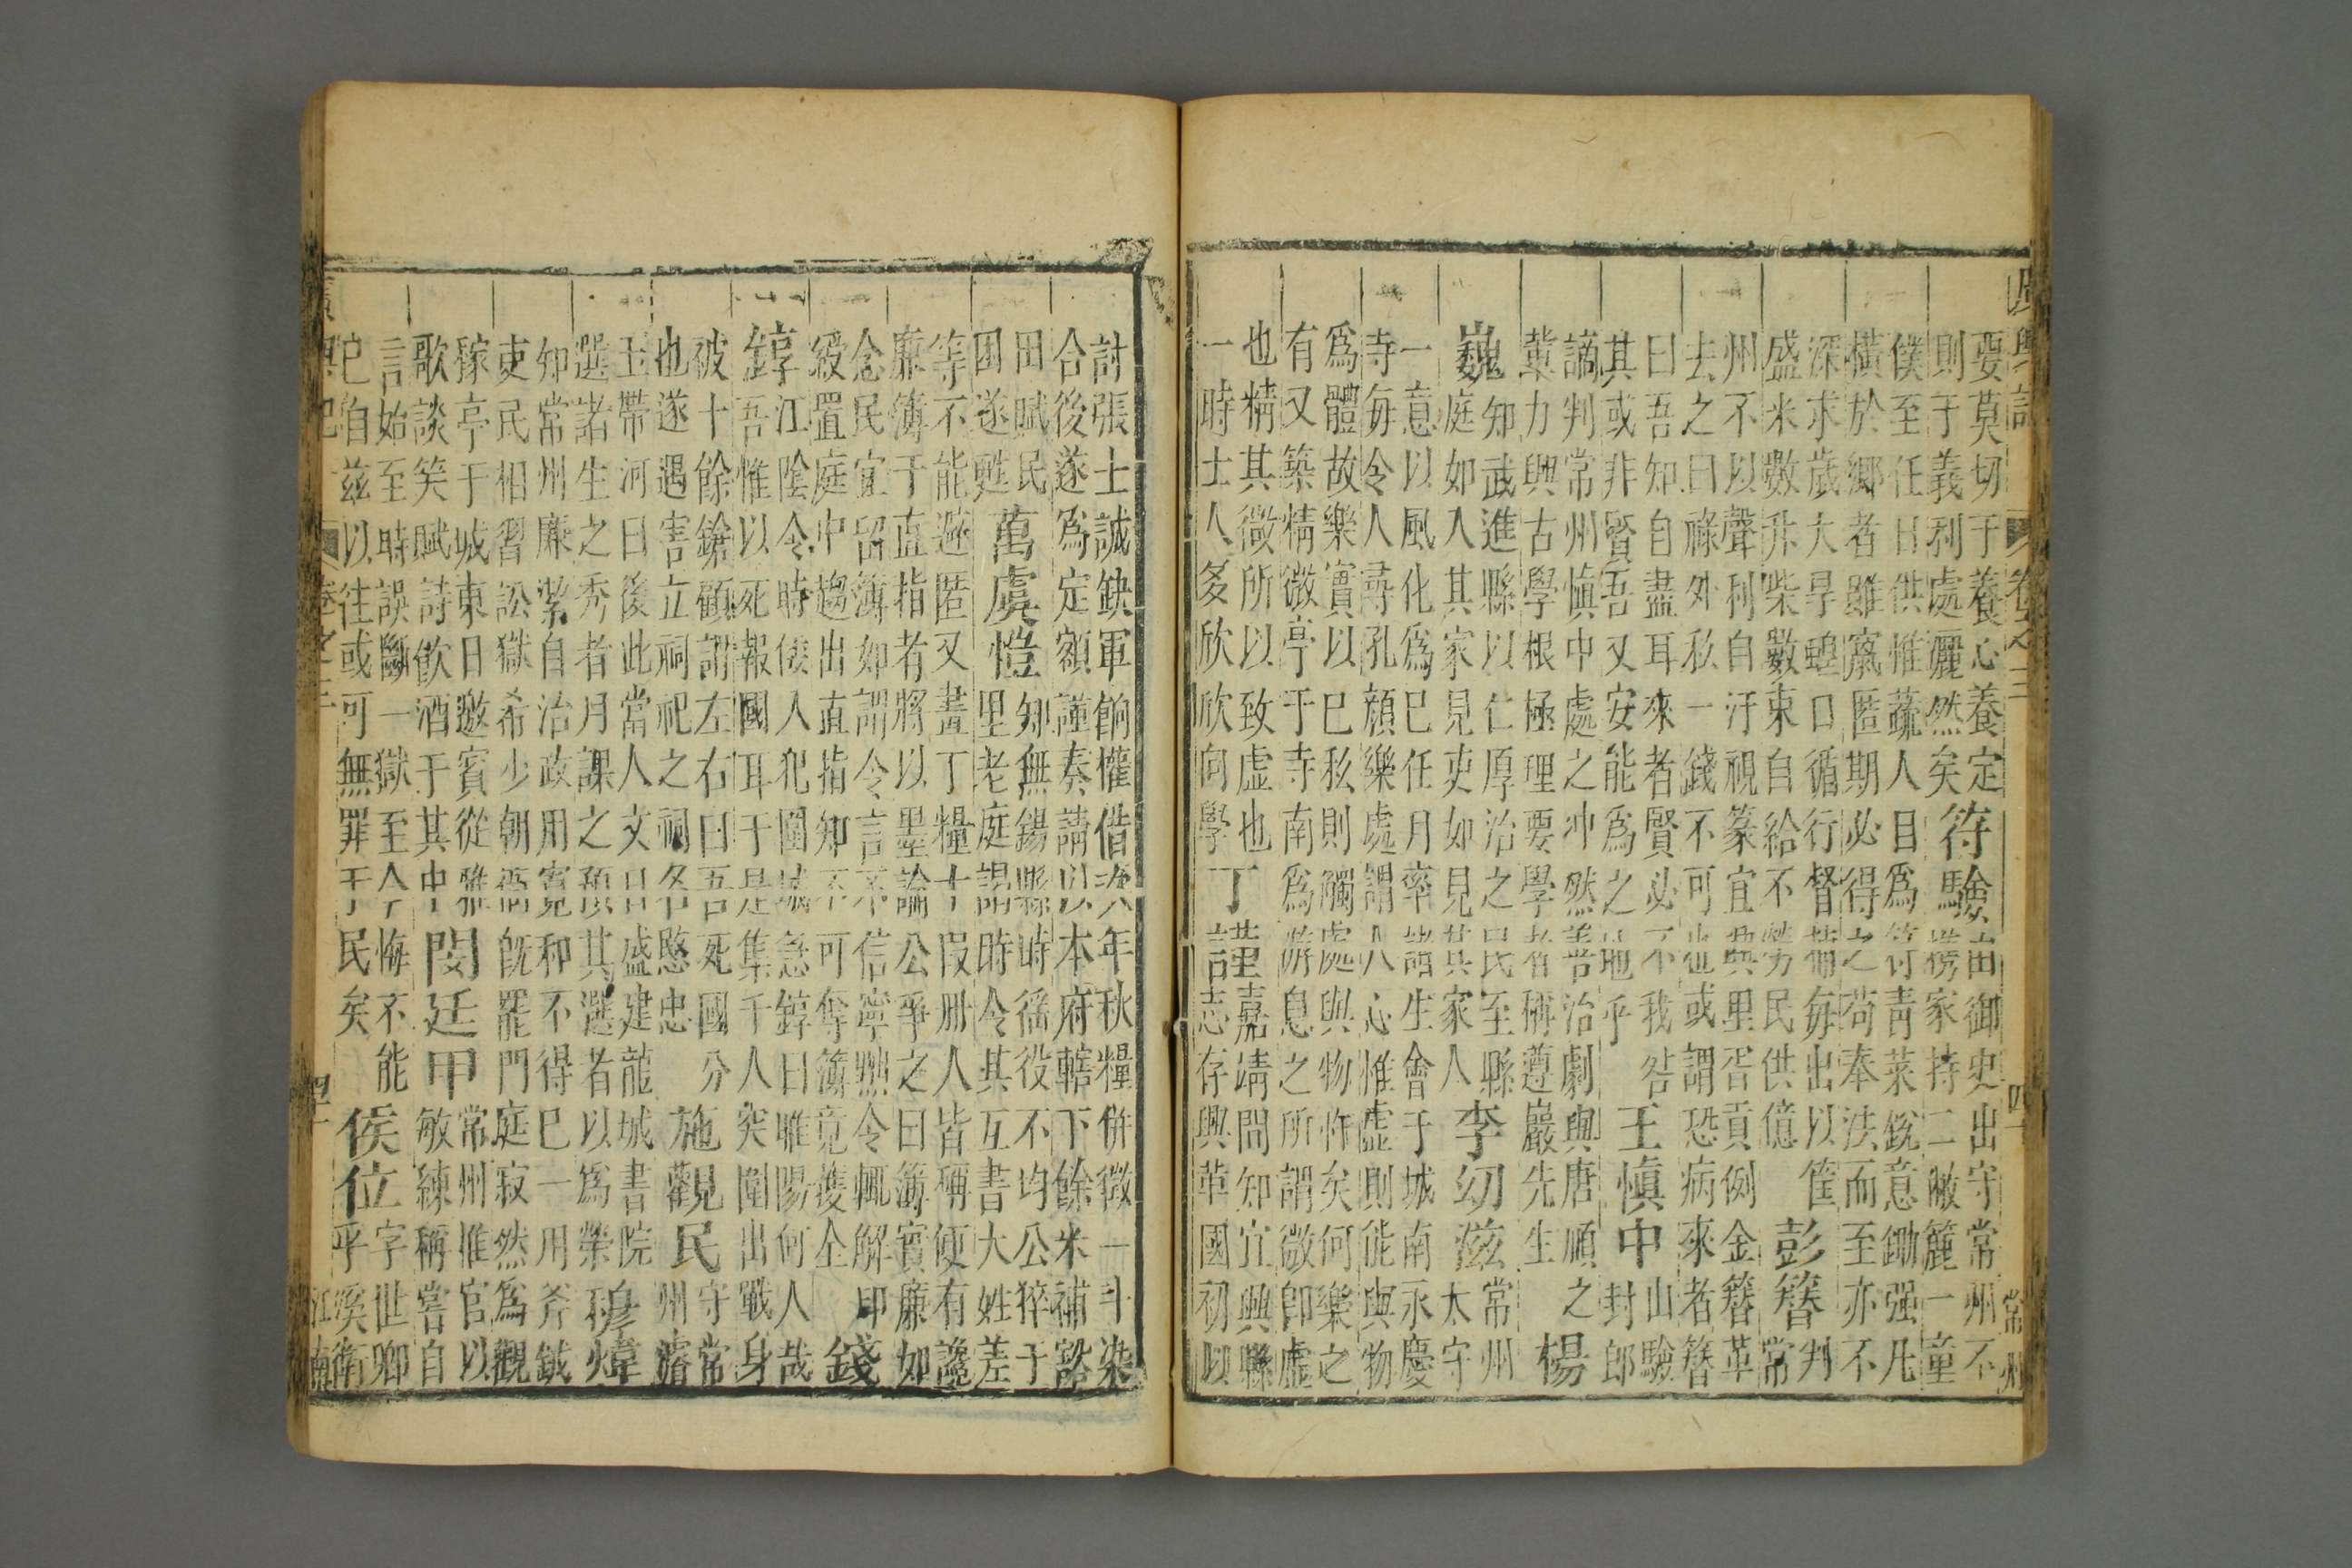 廣輿記 卷之三 四十 常州
要莫切于養心養定 符驗 由御史出守常州不
則于義利處灑然矣 㩦家持二敝簏一童
僕至任日供惟蔬人目為笴青菜銳意鋤强凡
橫於鄉者雖窩匿期必得之苟奉法而至亦不
深求歲大旱蝗口循行督捕每出以筐 彭簪 判
盛米數升柴數束自給不勞民供億 常
州不以聲利自汙視篆宜興里胥貢例金簪革
去之曰祿外私一錢不可也或謂恐病來者簪
曰吾知自盡耳來者賢必不我咎 王慎中 山驗
其或非賢吾又安能爲之地乎 封郎
謫判常州慎中處之冲然善治劇與唐順之
冀力興古學根極理要學者稱遵巖先生 楊
巍 知武進縣以仁厚治之民至縣 李幼滋 常州
庭如入其家見吏如見其家人 太守
一意以風化爲巳任月率諸生會于城南永慶
寺每令人尋孔顏樂處謂人心惟虛則能與物
爲體故樂實以巳私則觸處與物忤矣何樂之
有又築精微亭于寺南爲游息之所謂微卽虛
也精其微所以致虛也 丁謹 嘉靖間知宜興縣
一時士人多欣欣向學 志存興革國初以
討張士誠缺軍餉權借次年秋糧併徵一斗染
合後遂爲定額謹奏請以本府轄下餘米補豁
田賦民 萬虞愷 知無錫縣時徭役不均公猝于
困遂甦 里老庭謁時令其互書大姓差
等不能遯匿又畫丁糧十叚册人皆稱便有讒
廉簿于直指者將以墨論公爭之曰簿實廉如
念民宜留簿如謂令言不信寧黜令輒解印
綬置庭中趨出直指知不可奪簿竟獲全 錢
錞 江陰令時倭人犯圍城急錞曰睢陽何人哉
吾惟以死報國耳于是集千人突圍出戰身
被十餘鎗顧謂左右曰吾死國分 施觀民 守常
也遂遇害立祠祀之祠名愍忠 州濬
玉帶河曰後此當人文日盛建龍城書院
選諸生之秀者月課之預其選者以爲榮 穆煒
知常州廉潔自治政用寬和不得巳一用斧鉞
吏民相習訟獄希少朝衙旣罷門庭寂然爲觀
稼亭于城東日邀賓從雅 閔廷甲 常州推官以
歌談笑賦詩飮酒于其中 敏練稱嘗自
言始至時誤斷一獄至今悔不能 侯位 字世卿
巳自兹以往或可無罪于民矣 平溪衛
廣輿記 卷之三 四十一 江南